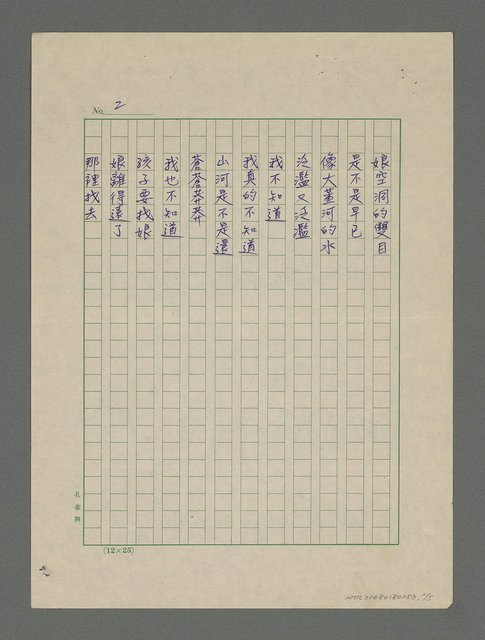 No. 2
娘空洞的雙目
是不是早已
像大黃河的水
泛濫又泛濫
我不知道
我真的不知道
山河是不是還
蒼蒼莽莽
我也不知道
孩子要找娘
娘離得遠了
那裡找去
孔雀牌
(12×25)